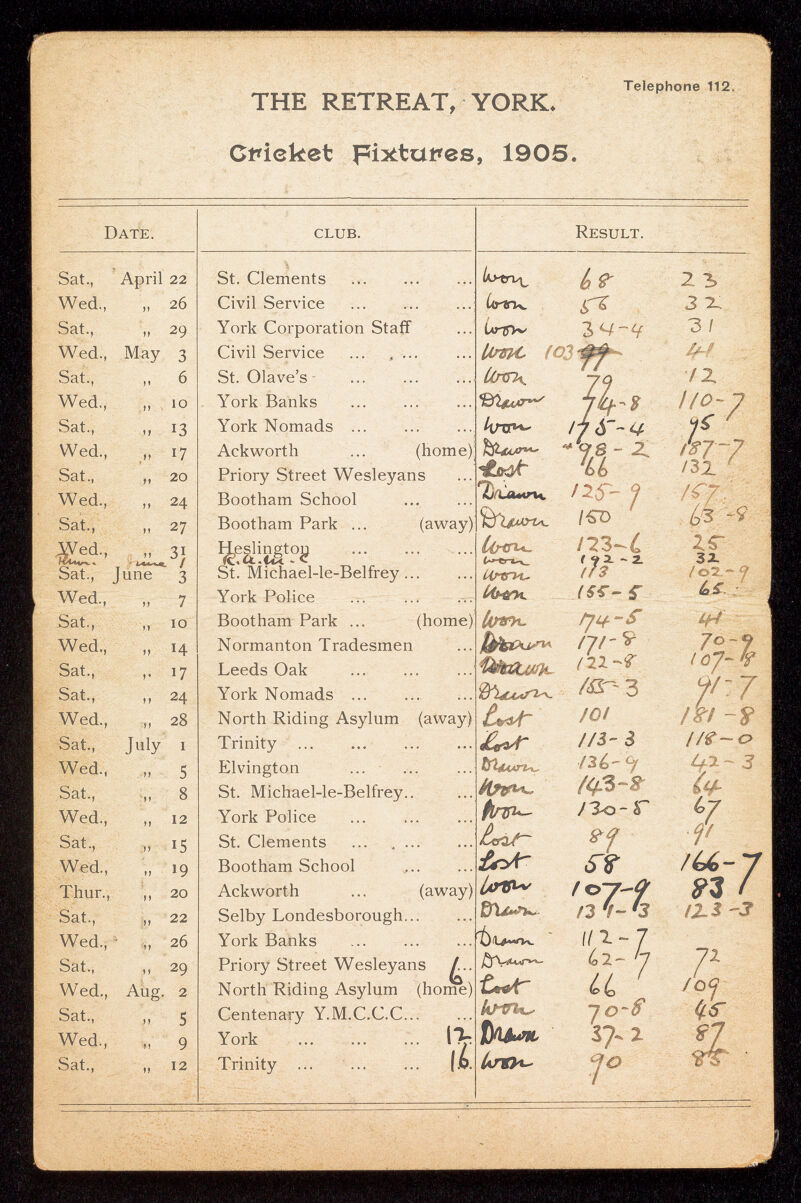 Telephone 112.
THE RETREAT, YORK.
Cricket Fixtures, 1905.
DATE. CLUB. RESULT.
Sat., April 22 St. Clements ... ... ... Won 68 23
Wed., „ 26 Civil Service ... ... ... Won 56 32
Sat., „ 29 York Corporation Staff ... Won 34-4 31
Wed., May 3 Civil Service ... ... ... Won 103 41
Sat., „ 6 St. Olave's ... ... ... Won 79 12
Wed., „ 10 York Banks ... ... ... Drawn 74-8 110-7
Sat., „ 13 York Nomads ... ... ... Won 175-4 95
Wed., „ 17 Ackworth ... (home) Drawn 98-2 187-7
Sat., „ 20 Priory Street Wesleyans ... Lost 66 132
Wed., „ 24 Bootham School ... ... Drawn 125-9 157
Sat., „ 27 Bootham Park ... (away) Drawn 150 63-9
Wed., „ 31 Heslington ... ... ... Won 123-6 25
Thurs. June 1 Won 192-2 32
Sat., June 3 St. Michael-le-Belfrey ... ... Won 113 102-9
Wed., „ 7 York Police ... ... ... Won 155-5 65
Sat., „ 10 Bootham Park ... (home) Won 74-5 41
Wed., „ 14 Normanton Tradesmen ... Drawn 171-8 70-9
Sat., „ 17 Leeds Oak ... ... ... Drawn 122-8 107-8
Sat., „ 24 York Nomads ... ... ... Drawn 155-3 91-7
Wed., „ 28 North Riding Asylum (away) Lost 101 181-8
Sat., July 1 Trinity ... ... ... ... Lost 113-3 118-0
Wed., „ 5 Elvington ... ... ... Drawn 136-9 42-3
Sat., „ 8 St. Michael-le-Belfrey.. ... Won 143-8 64
Wed., „ 12 York Police ... ... ... Won 130-5 67
Sat., „ 15 St. Clements ... ... ... Lost 89 91
Wed., „ 19 Bootham School ... ... Lost 58 166-7
Thur., „ 20 Ackworth ... (away) Won 107-9 83
Sat., „ 22 Selby Londesborough... ... Drawn 131-3 123-3
Wed., „ 26 York Banks ... ... ... Drawn 112-7
Sat., „ 29 Priory Street Wesleyans ... Drawn 62-7 72
Wed., Aug. 2 North Riding Asylum (home) Lost 66 109
Sat., „ 5 Centenary Y.M.C.C.C... ... Won 70-8 45
Wed., „ 9 York ... ... ... 12 Drawn 37-2 87
Sat., „ 12 Trinity ... ... ... 16. Won 90 85